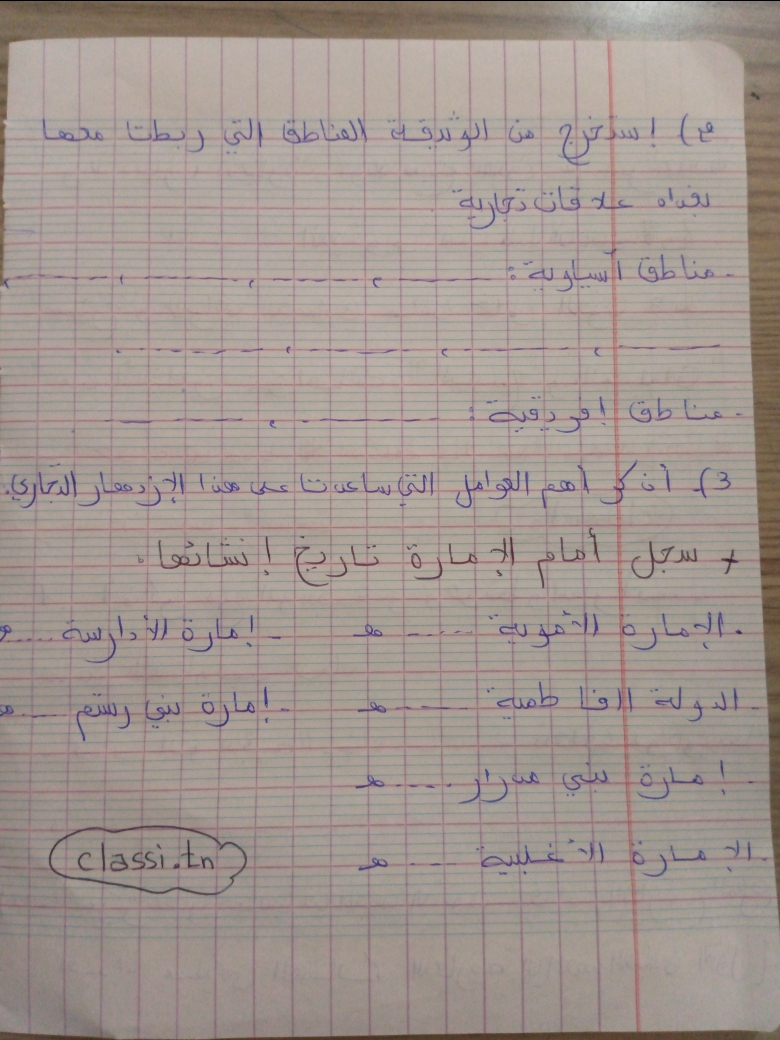 2) إستخرج من الوثيقة المناطق التي ربطت معها
بغداد علاقات تجارية
- مناطق آسياوية : ـــــــ ، ـــــــ ، ـــــــ ، ـــــــ ،
ـــــــ ، ـــــــ ، ـــــــ ، ـــــــ .
- مناطق إفريقية : ـــــــ ، ـــــــ
3) أذكر أهم العوامل التي ساعدت على هذا الإزدهار التجاري.
+ سجل أمام الإمارة تاريخ إنشائها .
- الإمارة الأموية ..... هـ - إمارة الأدارسة ..... هـ
- الدولة الفاطمية ..... هـ - إمارة بني رستم ..... هـ
- إمارة بني مدرار ..... هـ
- الإمارة الأغلبية ..... هـ
classi.tn